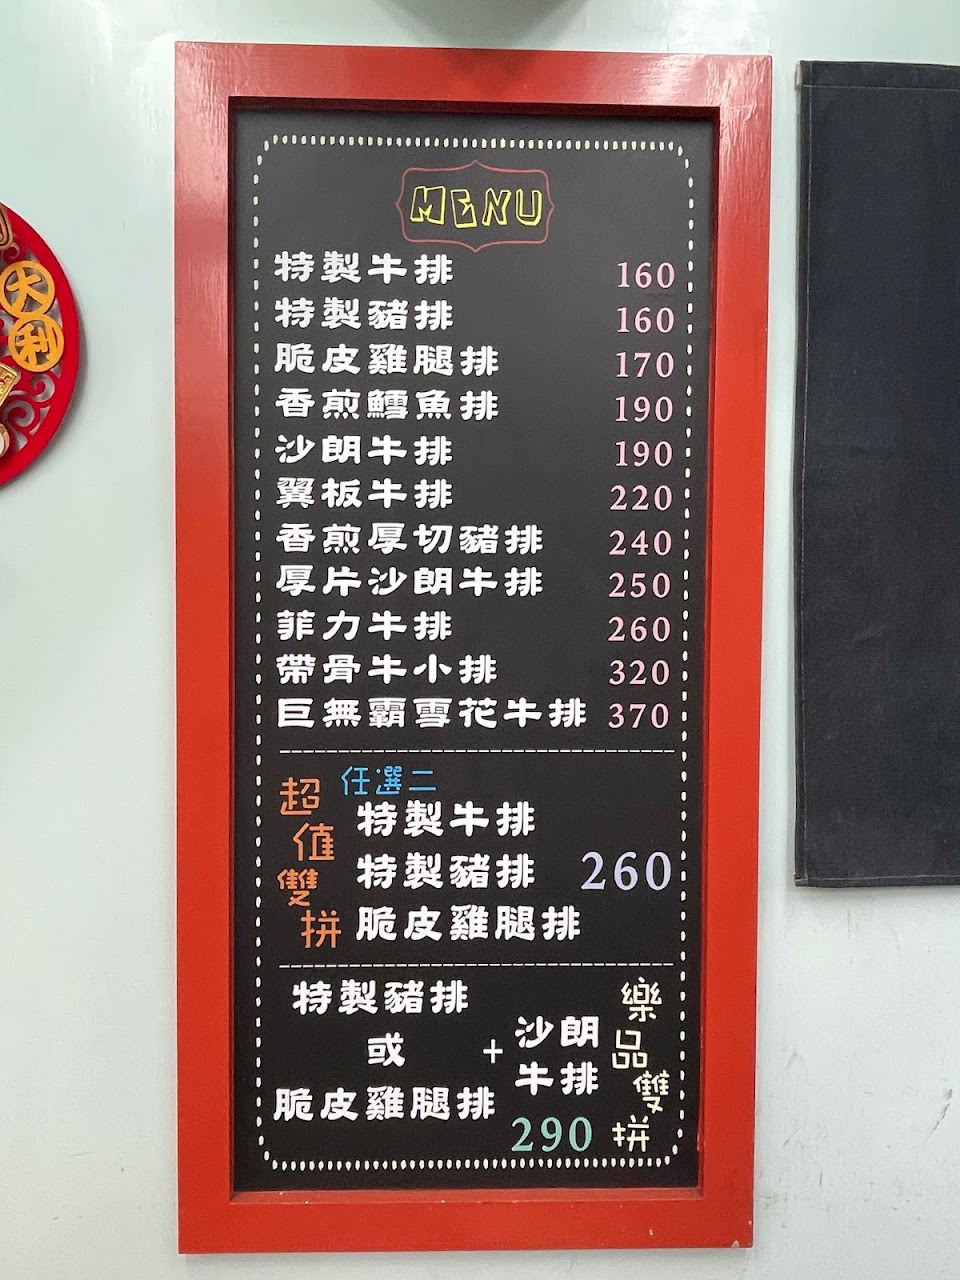 大利
MENU
特製牛排 160
特製豬排 160
脆皮雞腿排 170
香煎鱈魚排 190
沙朗牛排 190
翼板牛排 220
香煎厚切豬排 240
厚片沙朗牛排 250
菲力牛排 260
帶骨牛小排 320
巨無霸雪花牛排 370
超值雙拼
任選二
特製牛排
特製豬排 260
脆皮雞腿排
特製豬排
或
脆皮雞腿排
+
沙朗
牛排
290
樂品雙拼